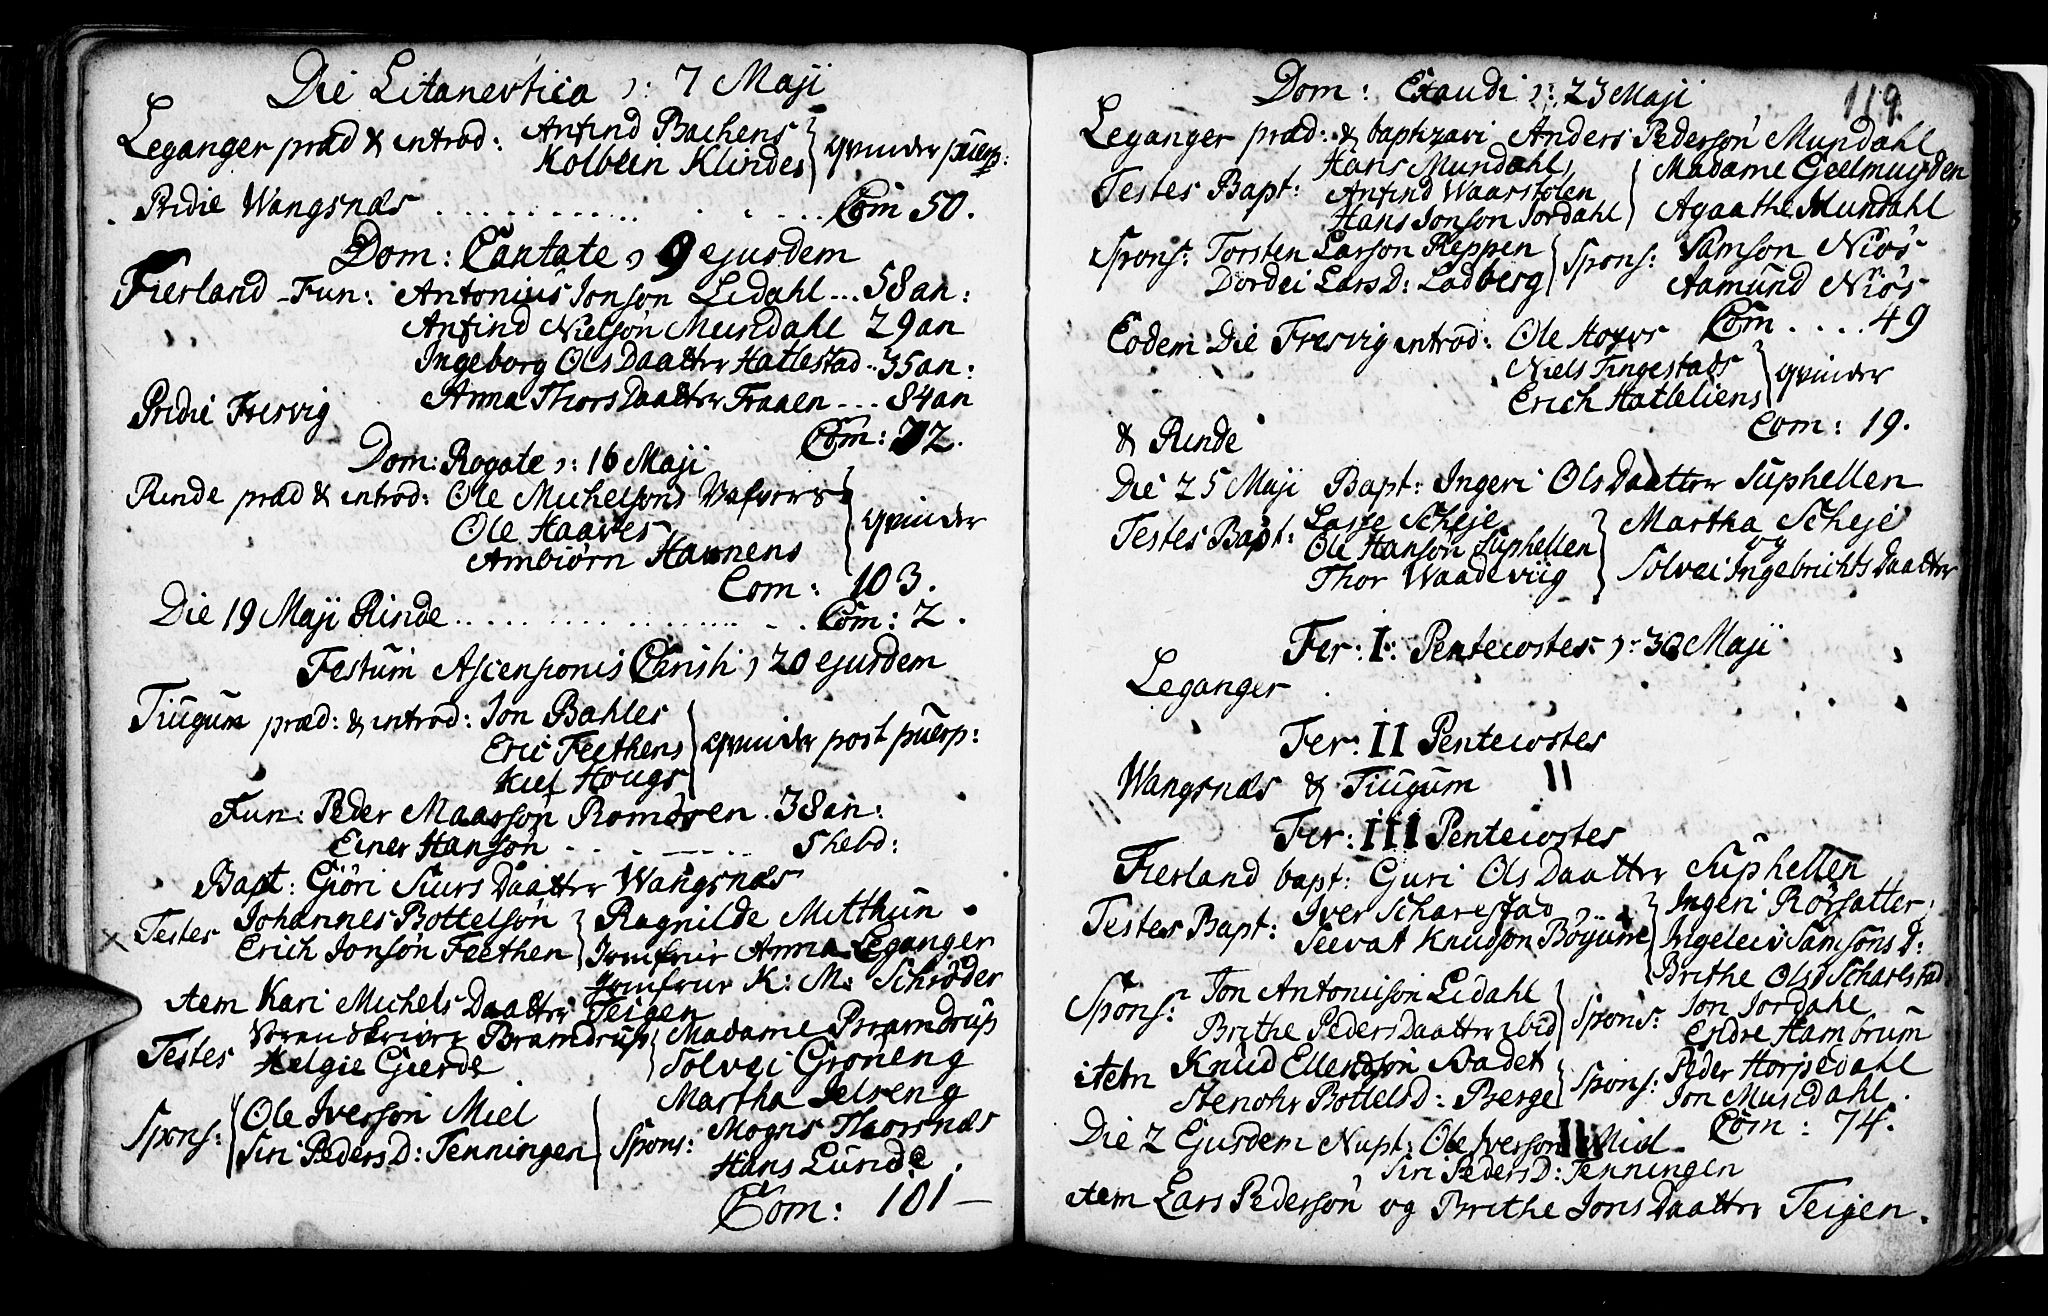 Die Litaneutica ɔ: 7 Maji
Leganger præd & introd: Anfind Bachens
Kolbein Klindes } qvinder puerp:
Pridie Wangsnæs . . . . . . . . . . . . Com 50.
Dom: Cantate ɔ 9 ejusdem
Fierland Fun: Antonius Jonson Lidahl ... 58 an:
Anfind Nielsøn Mundahl 29 an
Ingeborg Ols Daatter Hatlestad .. 35 an:
Pridie Fresvig Anna Thors Daatter Fraaen ... 84 an
Com: 72.
Dom: Rogate ɔ: 16 Maji
Rinde præd & introd: Ole Michelsons
Ole Haaves
Ambiørn Hamnens } qvinder
Com: 103.
Die 19 Maji Rinde . . . . . . . . . Com: 2.
Festum Ascensionis Christi ɔ 20 ejusdem
Tiugum præd: & introd: Jon Bahles
Eric Feethens
Kiel Hougs } qvinder post puerp:
Fun: Peder Maassøn Romøren . 38 an:
Einer Hansøn . . . . . . 5 hebd:
Bapt: Giøri Siurs Daatter Wangsnæs
Testes Johannes Bottelsøn } Ragnilde Mitthun
Erich Jonsøn Feethen } Jomfrur Anna Leganger
Jomfrur K: M: Schrøder
item Kari Michels Daatter Teigen
Testes Sorenskriver Bramdrup } Madame Bramdrup
Helgie Gierde } Solvei Grøneng
Martha Jelseng
Spons: { Ole Iversøn Miel } Spons: Mogns Thorsnæs
Siri Peders D: Tenningen } Hans Lunde
Com: 101 —
119.
Dom: Exaudi ɔ: 23 Maji
Leganger præd: & baptizavi Anders Pedersøn Mundahl
Testes Bapt: Hans Mundahl,
Anfind Waarstolen
Hans Jonson Jordahl } Madame Geelmuyden
Agaathe Mundahl
Spons: Torsten Larson Reppen } Spons: Samson Niøs
Dordei Lars D: Ladberg } Aamund Niøs
Com . . . . 49
Eodem Die Fresvig introd: Ole Hovrs
Niels Tingestads
Erich Hatleliens } qvinder
Com: 19.
& Rinde
Die 25 Maji Bapt: Ingeri Ols Daatter Suphellen
Testes Bapt: Lasse Scheje
Ole Hanson Suphellen
Thor Waadeviig } Martha Scheje
og
Solvei Ingebrichts Daatter
Fer: I: Pentecostes ɔ: 30 Maji
Leganger
Fer: II Pentecostes
Wangsnæs & Tiugum
Fer: III Pentecostes
Fierland bapt: Guri Ols Daatter Suphellen
Testes Bapt: Iver Scharestad } Ingeri Rørsatter,
Seevat Knudson Bøyum } Ingeleiv Samsons D:
Brithe Ols D Scharestad
Spons: Jon Antonison Lidahl } Spons: Jon Jordahl
Brithe Peders Daatter ibid } Endre Hambrum
item Knud Ellendsøn Stadet } Spons: Peder Horpedahl
Stenohr Bottels D: Berge } Jon Mundahl.
Com: 74.
Die 2 Ejusdem Nupt: Ole Iverson Miel
Siri Peders D: Tenningen
item Lars Pedersøn og Brithe Jons Daatter Teigen.